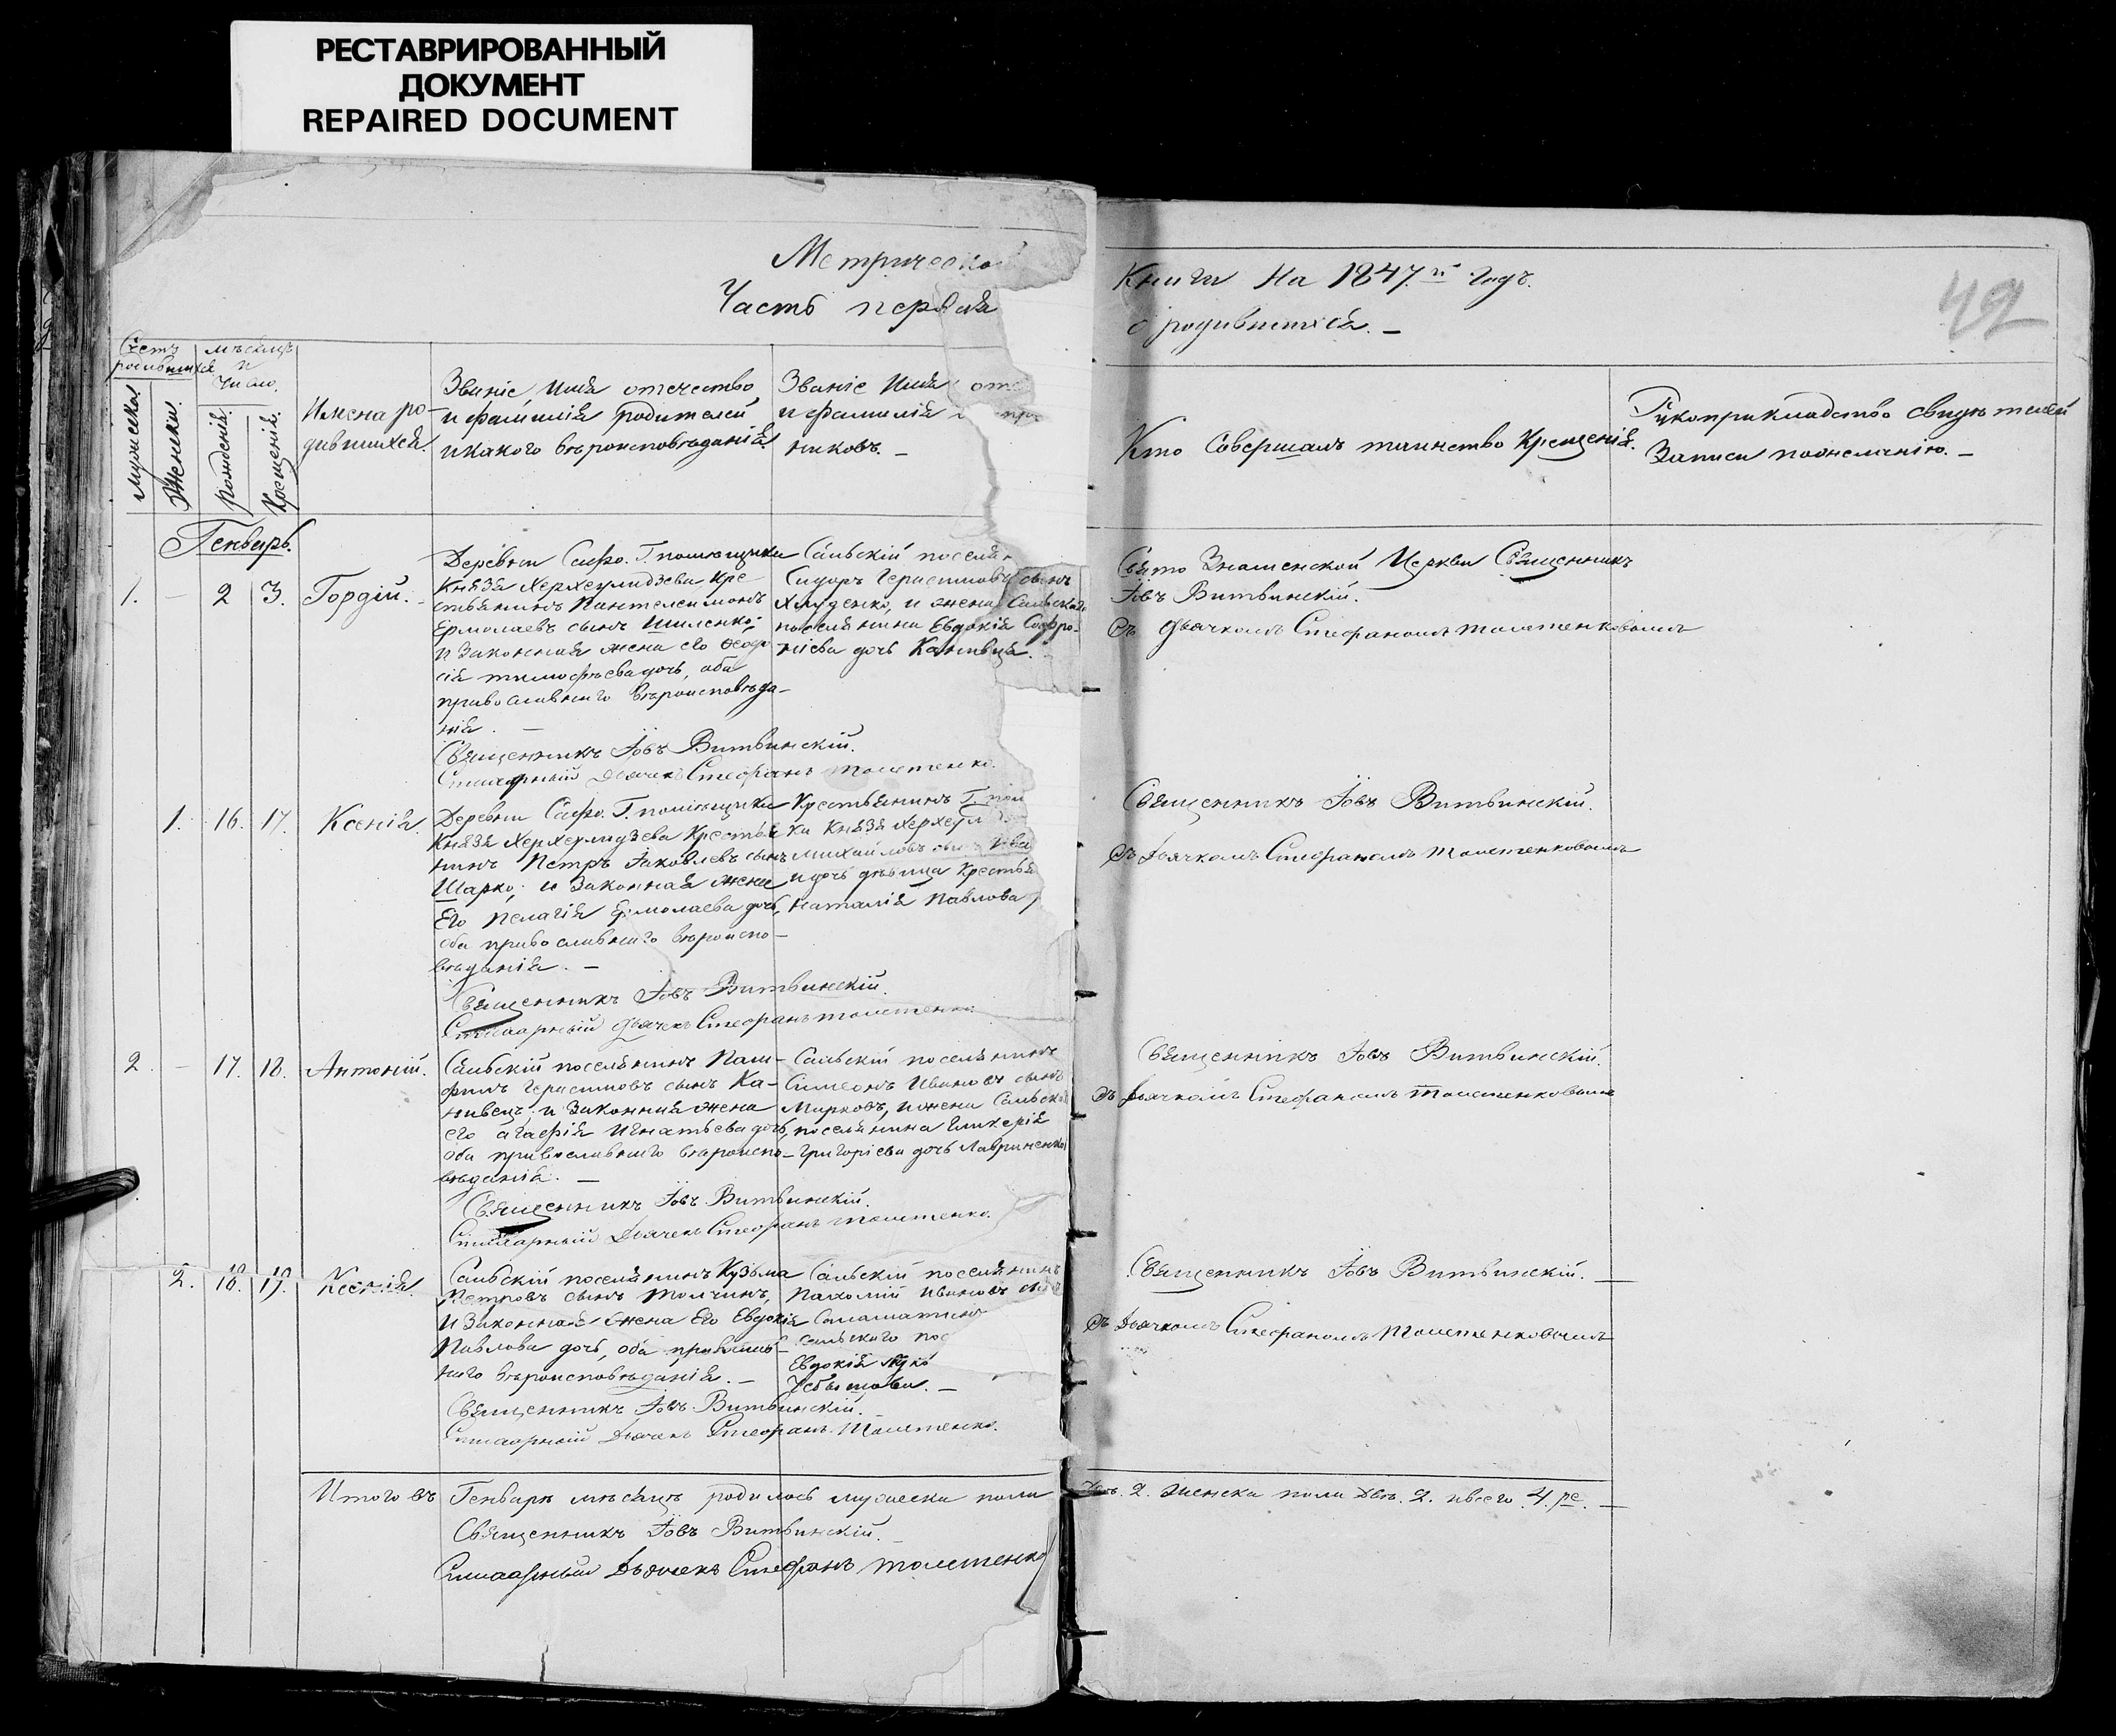 РЕСТАВРИРОВАННЫЙ
ДОКУМЕНТ
REPAIRED DOCUMENT
42
Метрической Книги на 1847.й Годъ.
Часть первая о родившихся. –
Счетъ родившихся
Мужеска.
Женска.
мѣсяцъ и Число.
рожденія.
Крещенія.
Имена ро-
дившихся.
Званіе, Имя отечество
и фамилія родителей
и какого вѣроисповѣданія.
Званіе Имя оте
и фамилія
никовъ. –
Кто Совершалъ таинство Крещенія.
Рукоприкладство свидѣтелей
Записи по желанію. –
Генварь.
1. – 2 3. Гордій. –
Деревни Сафо. Г. помещика
Князя Херхеулидзева Кре
стьянинъ Пантелеимонъ
Ермолаевъ сынъ Шиленко;
и Законная жена его
сія тимофѣева дочь, оба
православнаго вѣроисповѣда-
нія. –
Священникъ Іовъ Витвинскій.
Дьячекъ Стефанъ толстенко.
Сидоръ Герасимовъ сынъ
и жена
поселянина Евдокія Софро-
ніева дочь Канивца. –
Свято Знаменской Церкви Священникъ
Іовъ Витвинскій.
Съ дьячкомъ Стефаномъ толстенковымъ
1. 16. 17. Ксенія.
Деревни Сафо. Г. помещика
Князя Херхеулидзева Крестья
нинъ Петръ Іаковлевъ сынъ
Шарко; и Законная жена
Его Пелагія Ермолаева дочь,
оба православнаго вѣроиспо-
вѣданія. –
Священникъ Іовъ Витвинскій.
Дьячекъ Стефанъ толстенко
Крестьянинъ Г. пом
ка Князя Херхеул
Михайловъ
и дочь дѣвица Крестья
Наталія Павлова
Священникъ Іовъ Витвинскій.
Съ Дьячкомъ Стефаномъ Толстенковымъ
2. – 17. 18. Антоній.
поселянинъ Пам-
филъ Герасимовъ сынъ Ка-
нивецъ; и Законная жена
его Агафія Игнатьева дочь,
оба православнаго вѣроиспо-
вѣданія. –
Священникъ Іовъ Витвинскій.
Дьячекъ Стефанъ толстенко.
поселянинъ
Симеонъ Ивановъ сынъ
Марковъ, и жена
поселянина Гликерія
Григоріева дочь Лавриненко
Священникъ Іовъ Витвинскій.
Съ Дьячкомъ Стефаномъ Толстенковымъ
2. Ксенія.
поселянинъ Кузьма
Петровъ сынъ Толчинъ,
и Законная жена Его Евдокія
Павлова дочь, оба православ-
наго вѣроисповѣданія. –
Священникъ Іовъ Витвинскій.
Дьячекъ Стефанъ Толстенко.
поселянинъ
Пахомій Ивановъ
Евдокія
Священникъ Іовъ Витвинскій. –
Съ Дьячкомъ Стефаномъ Толстенковымъ
Итого въ Генварѣ мѣсяцѣ родилось мужеска пола два. 2. женска пола двѣ. 2. и всего 4.ре. –
Священникъ Іовъ Витвинскій.
Дьячекъ Стефанъ толстенко